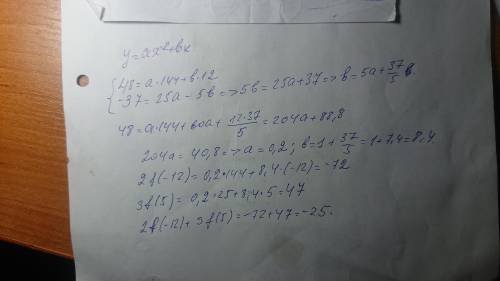 y=ax²+bx
{48=a·144+b·12
-37=25a-5b=>5b=25a+37=>b=5a+37/5
48=a·144+60a+12·37/5=204a+88,8
204a=40,8=>a=0,2; b=1+37/5=1+7,4=8,4.
2f(-12)=0,2·144+8,4·(-12)=-72
3f(5)=0,2·25+8,4·5=47
2f(-12)+3f(5)=-72+47=-25.